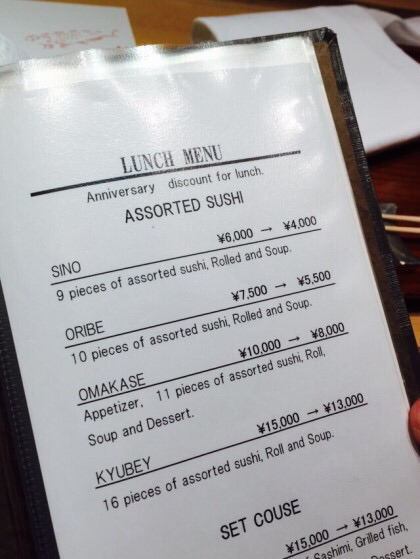 LUNCH MENU
Anniversary discount for lunch.
ASSORTED SUSHI
SINO ¥6,000 → ¥4,000
9 pieces of assorted sushi, Rolled and Soup.
ORIBE ¥7,500 → ¥5,500
10 pieces of assorted sushi, Rolled and Soup.
OMAKASE ¥10,000 → ¥8,000
Appetizer, 11 pieces of assorted sushi, Roll,
Soup and Dessert.
KYUBEY ¥15,000 → ¥13,000
16 pieces of assorted sushi, Roll and Soup.
SET COUSE
¥15,000 → ¥13,000
Sashimi, Grilled fish,
Dessert.